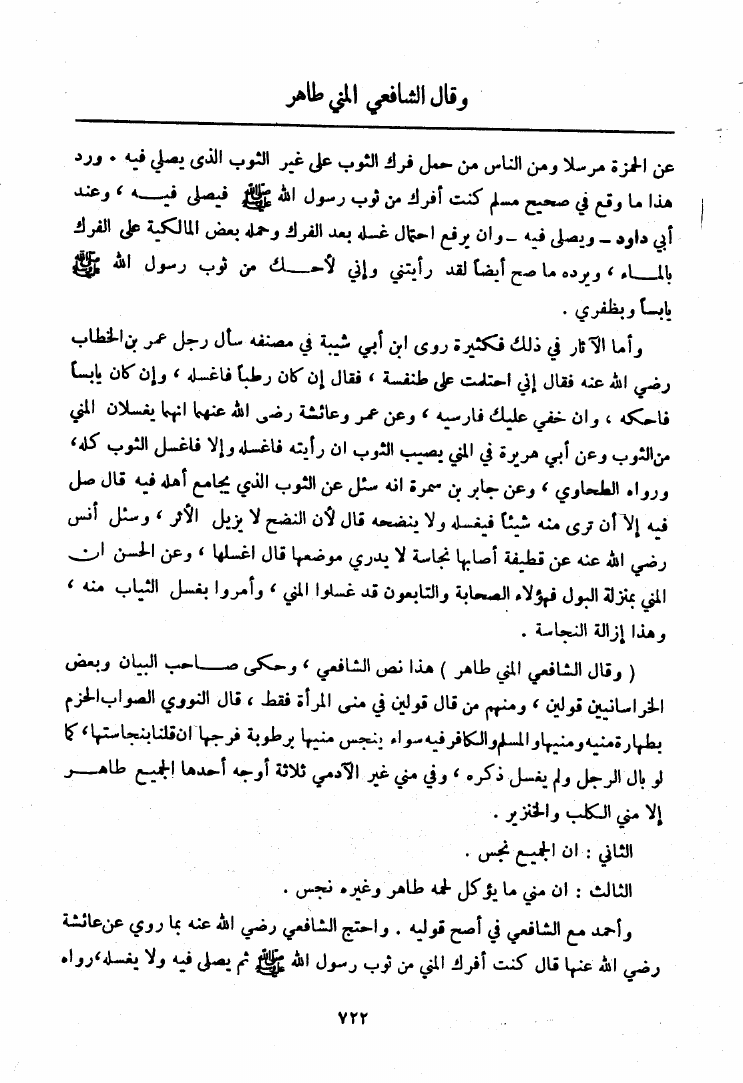 وقال الشافعي المني طاهر
عن الحمزة مرسلا ومن الناس من حمل فرك الثوب على غير الثوب الذى يصلي فيه . ورد
هذا ما وقع في صحيح مسلم كنت أفرك من ثوب رسول الله ﷺ فيصلى فيــه ، وعند
أبي داود ـ ويصلى فيه ـ وان يرفع احتمال غسله بعد الفرك وحمله بعض المالكية على الفرك
بالمــاء ، ويرده ما صح أيضاً لقد رأيتني وإني لأحــك من ثوب رسول الله ﷺ
يابساً وبظفري .
وأما الآثار في ذلك فكثيرة روى ابن أبي شيبة في مصنفه سأل رجل عمر بن الخطاب
رضي الله عنه فقال إني احتلمت على طنفسة ، فقال إن كان رطباً فاغسله ، وإن كان يابساً
فاحككه ، وان خفي عليك فارسيه ، وعن عمر وعائشة رضى الله عنهما انهما يغسلان المني
من الثوب وعن أبي هريرة في المني يصيب الثوب ان رأيته فاغسله وإلا فاغسل الثوب كله،
ورواه الطحاوي ، وعن جابر بن سمرة انه سئل عن الثوب الذي يجامع أهله فيه قال صل
فيه إلا أن ترى منه شيئاً فيغسله ولا ينضحه قال لأن النضح لا يزيل الأثر ، وسئل أنس
رضي الله عنه عن قطيفة أصابها نجاسة لا يدري موضعها قال اغسلها ، وعن الحسن ان
المني بمنزلة البول فهؤلاء الصحابة والتابعون قد غسلوا المني ، وأمروا بغسل الثياب منه ،
وهذا إزالة النجاسة .
( وقال الشافعي المني طاهر ) هذا نص الشافعي ، وحكى صــاحب البيان وبعض
الخراسانيين قولين ، ومنهم من قال قولين في منى المرأة فقط ، قال النووي الصواب الجزم
بطهارة منيه ومنيها والمسلم والكافر فيه سواء ينجس منيها برطوبة فرجها ان قلنا بنجاستها، كما
لو بال الرجل ولم يغسل ذكره ، وفي مني غير الآدمي ثلاثة أوجه أحدها الجميع طاهــر
إلا مني الكلب والخنزير .
الثاني : ان الجميع نجس .
الثالث : ان مني ما يؤكل لحمه طاهر وغيره نجس .
وأحمد مع الشافعي في أصح قوليه . واحتج الشافعي رضي الله عنه بما روي عن عائشة
رضي الله عنها قال كنت أفرك المني من ثوب رسول الله ﷺ ثم يصلى فيه ولا يغسله، رواه
٧٢٢